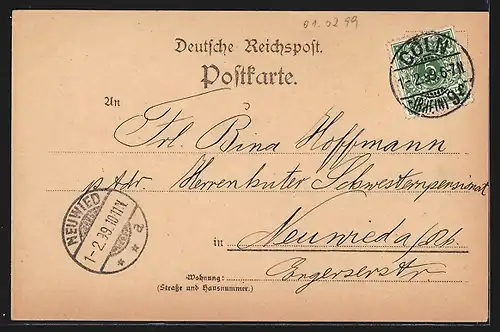 01.02.99
Deutsche Reichspost.
Postkarte.
CÖLN
1-2-99.6-7N
(RHEIN)
An
Frl. Bina Hoffmann
p. Adr. Herrenhuter Schwesternpensionat
NEUWIED
1-2.99.10-11V.
* a *
in Neuwied a/Rh.
Engerserstr.
Wohnung:
(Straße und Hausnummer.)